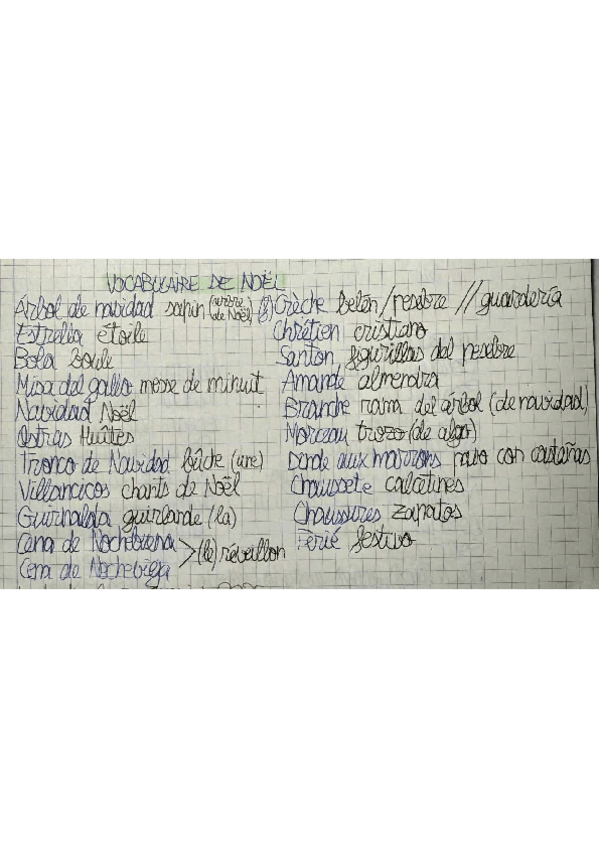 VOCABULAIRE DE NOËL
Árbol de navidad sapin (arbre de Noël)
Estrella étoile
Bola boule
Misa del gallo messe de minuit
Navidad Noël
Ostras Huîtres
Tronco de Navidad bûche (une)
Villancicos chants de Noël
Guirnalda guirlande (la)
Cena de Nochebuena
Cena de Nochevieja > (le) réveillon
Crèche belén/pesebre // guardería
Chrétien cristiano
Santon figurillas del pesebre
Amande almendra
Branche rama del árbol (de navidad)
Morceau trozo (de algo)
Dinde aux marrons pavo con castañas
Chaussete calcetines
Chaussures zapatos
Ferié festivo